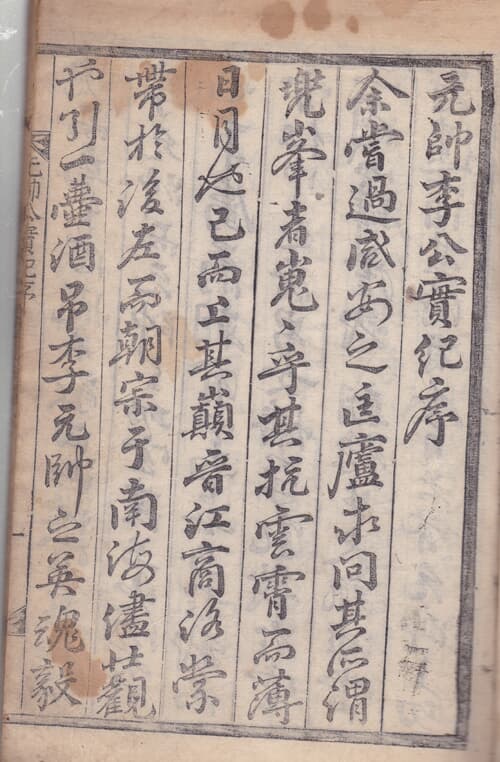 元帥李公實紀序
余嘗過咸安之匡廬求問其所謂
兜峯者嵬〻乎其抗雲霄而薄
日月也已而上其巔晋江商洛縈
帶於後左而朝宗于南海儘壯觀
也引一壷酒吊李元帥之英魂毅
元帥公實紀序